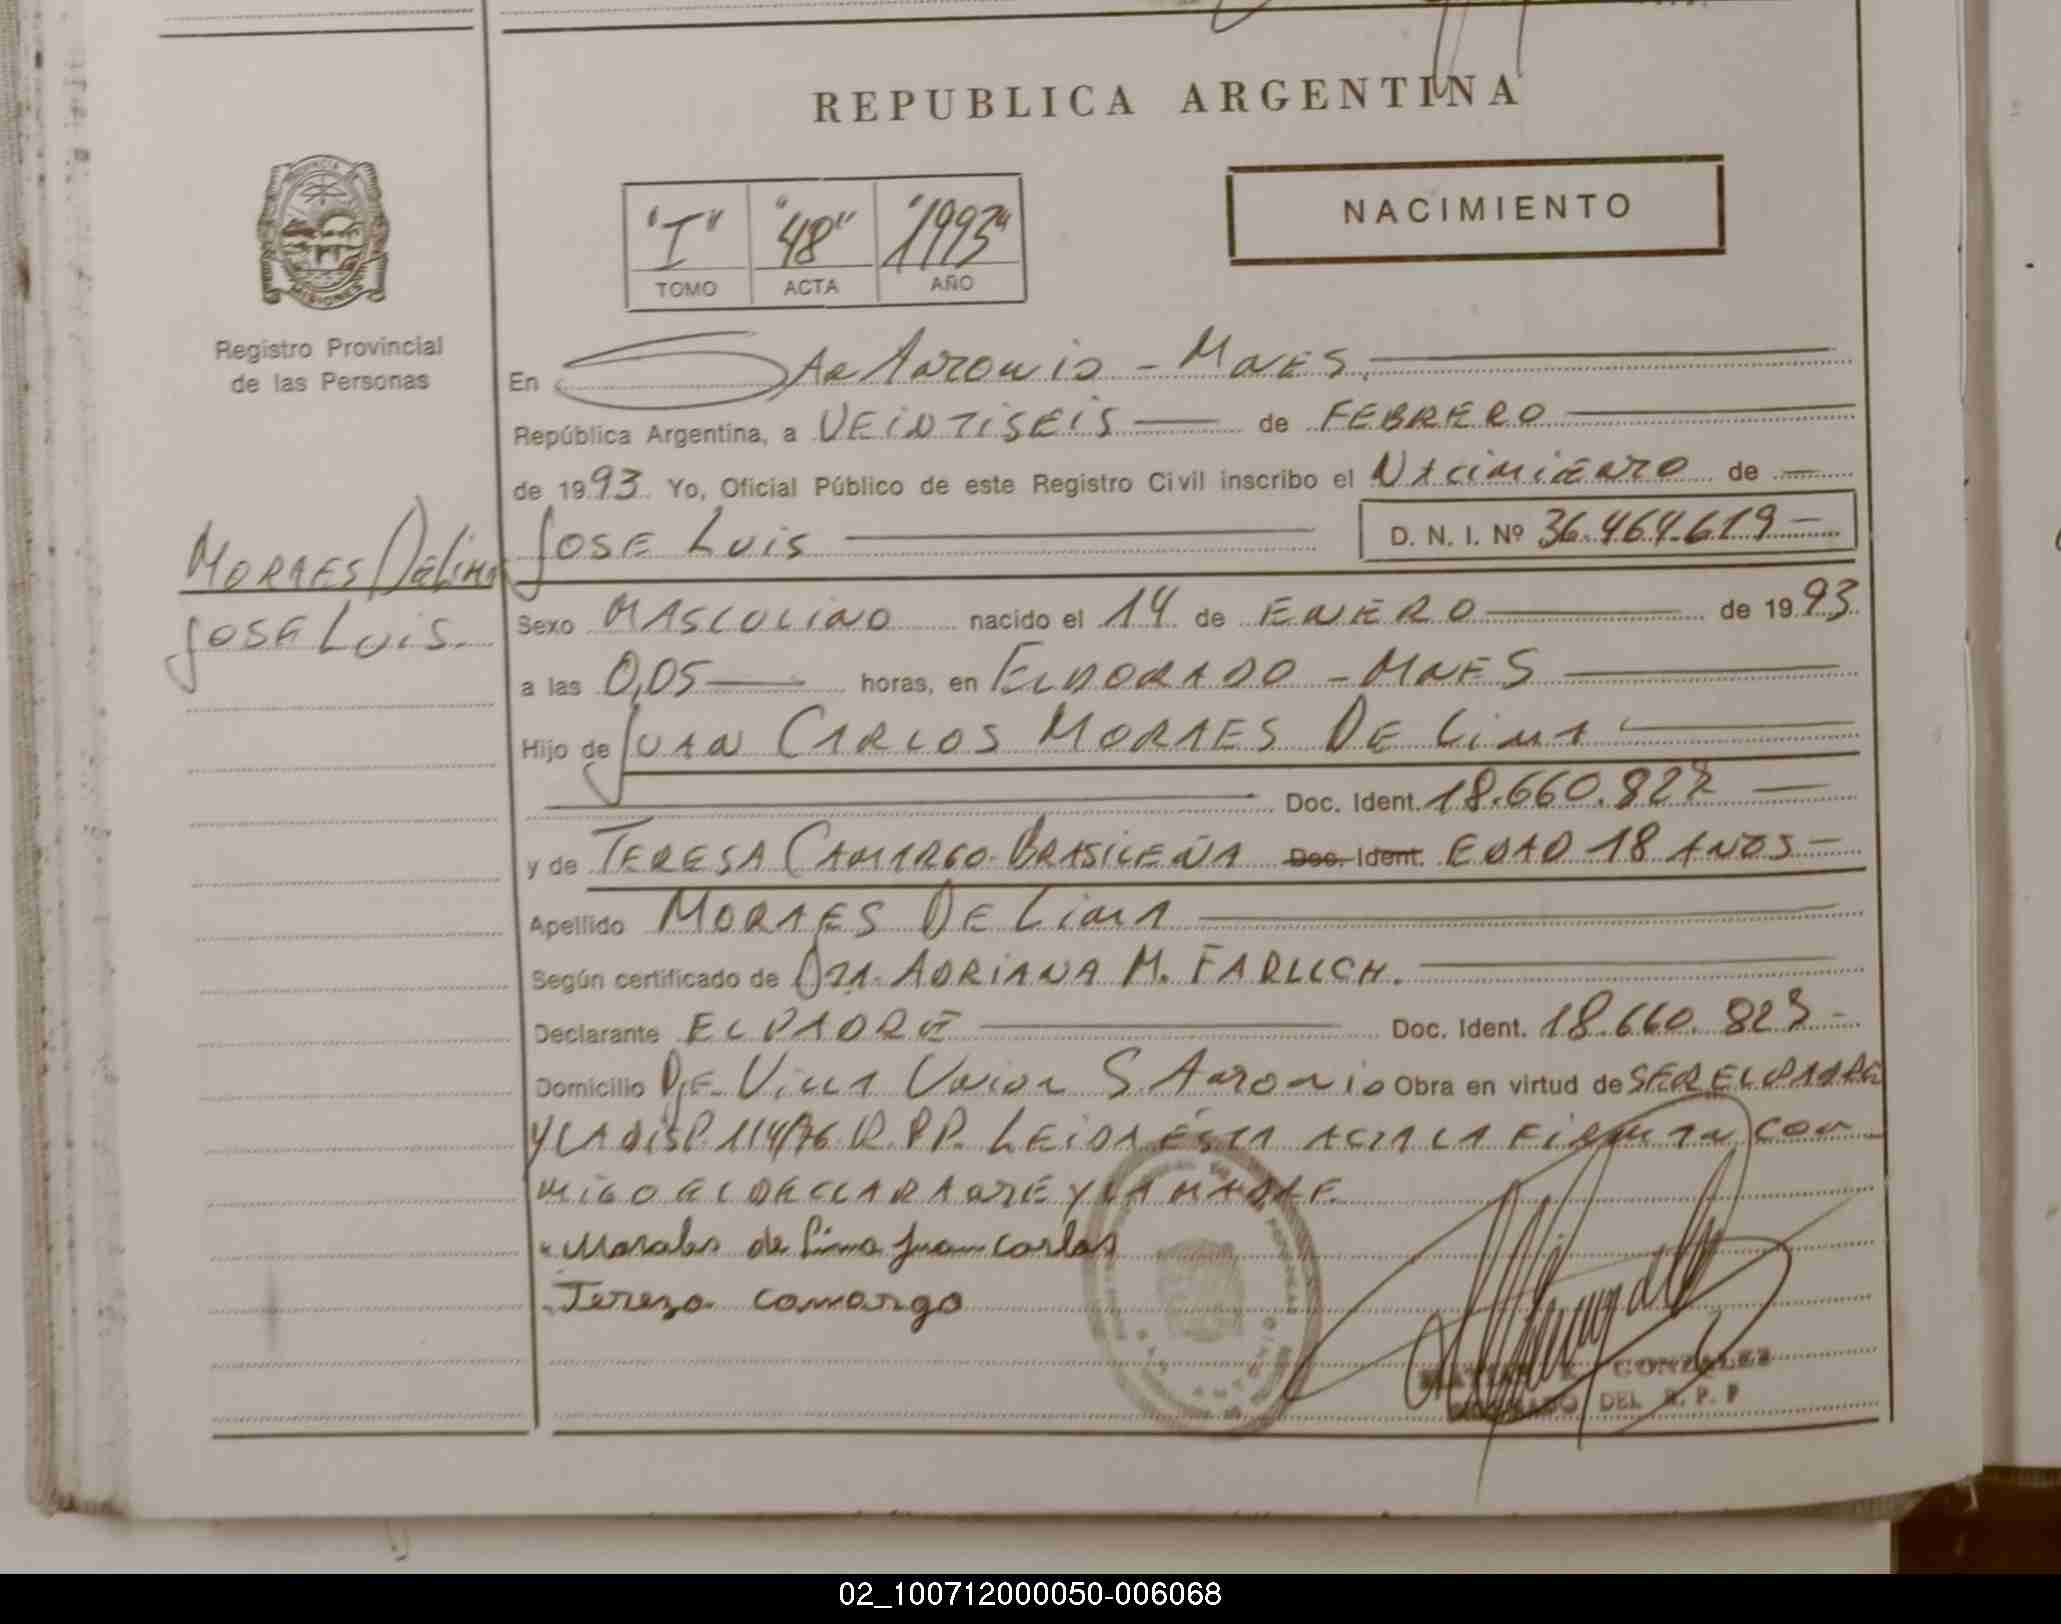 REPUBLICA ARGENTINA
"I" "48" "1993"
TOMO ACTA AÑO
NACIMIENTO
PROVINCIA
MISIONES
Registro Provincial
de las Personas
En San Antonio - Mnes.
República Argentina, a VEINTISEIS de FEBRERO
de 1993 Yo, Oficial Público de este Registro Civil inscribo el Nacimiento de
MORAES DeLima
JOSE LUIS.
JOSE LUIS D. N. I. Nº 36.464.619
Sexo MASCULINO nacido el 14 de ENERO de 1993
a las 0,05 horas, en ELDORADO - MNES
Hijo de JUAN CARLOS MORAES DE LIMA
Doc. Ident. 18.660.823
y de TERESA CAMARGO-BRASILEÑA Doc. Ident. EDAD 18 AÑOS
Apellido MORAES DE LIMA
Según certificado de Dra. ADRIANA M.
Declarante EL PADRE Doc. Ident. 18.660.823
Domicilio Villa Union S. Antonio Obra en virtud de SER EL PADRE
Y LA DISP. 114/76 R.P.P. LEIDA ESTA ACTA LA FIRMAN CON
MIGO EL DECLARANTE Y LA MADRE
Morales de Lima Juan Carlos
Tereza Camargo
GONZALEZ
DEL R. P. P
02_100712000050-006068